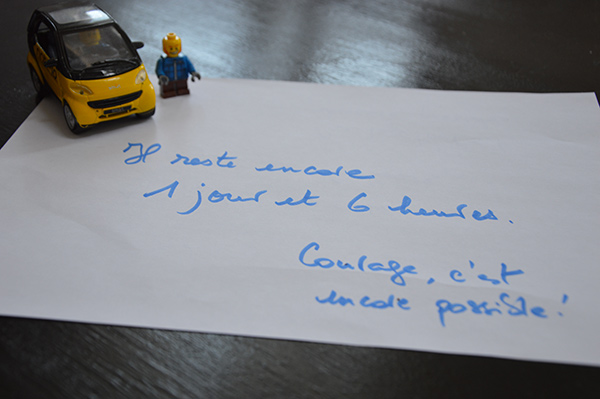 Il reste encore
1 jour et 6 heures.
Courage, c'est
encore possible!